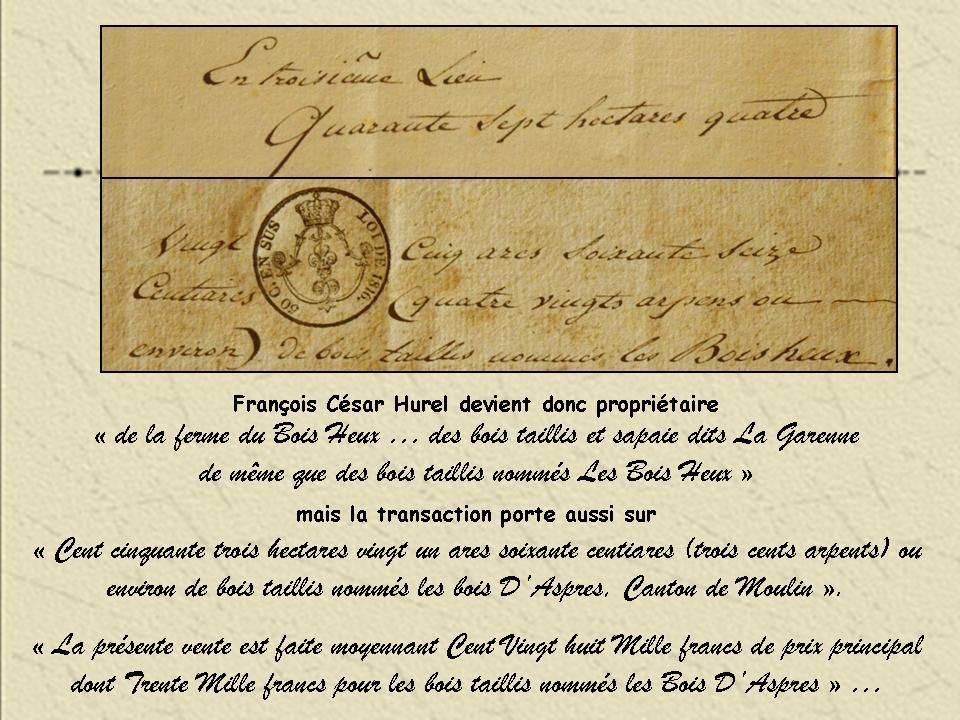 En troisième Lieu
Quarante sept hectares quatre
Vingt Cinq ares soixante seize
Centiares (quatre vingts arpens ou
environ) de bois taillis nommés les Bois heux.
30 C. EN SUS LOI DE 1816.
François César Hurel devient donc propriétaire
« de la ferme du Bois Heux ... des bois taillis et sapaie dits La Garenne
de même que des bois taillis nommés Les Bois Heux »
mais la transaction porte aussi sur
« Cent cinquante trois hectares vingt un ares soixante centiares (trois cents arpents) ou
environ de bois taillis nommés les bois D'Aspres, Canton de Moulin ».
« La présente vente est faite moyennant Cent Vingt huit Mille francs de prix principal
dont Trente Mille francs pour les bois taillis nommés les Bois D'Aspres » ...